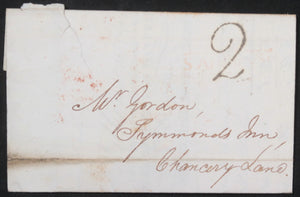 2
Mr. Gordon,
Symmonds Inn,
Chancery Lane.